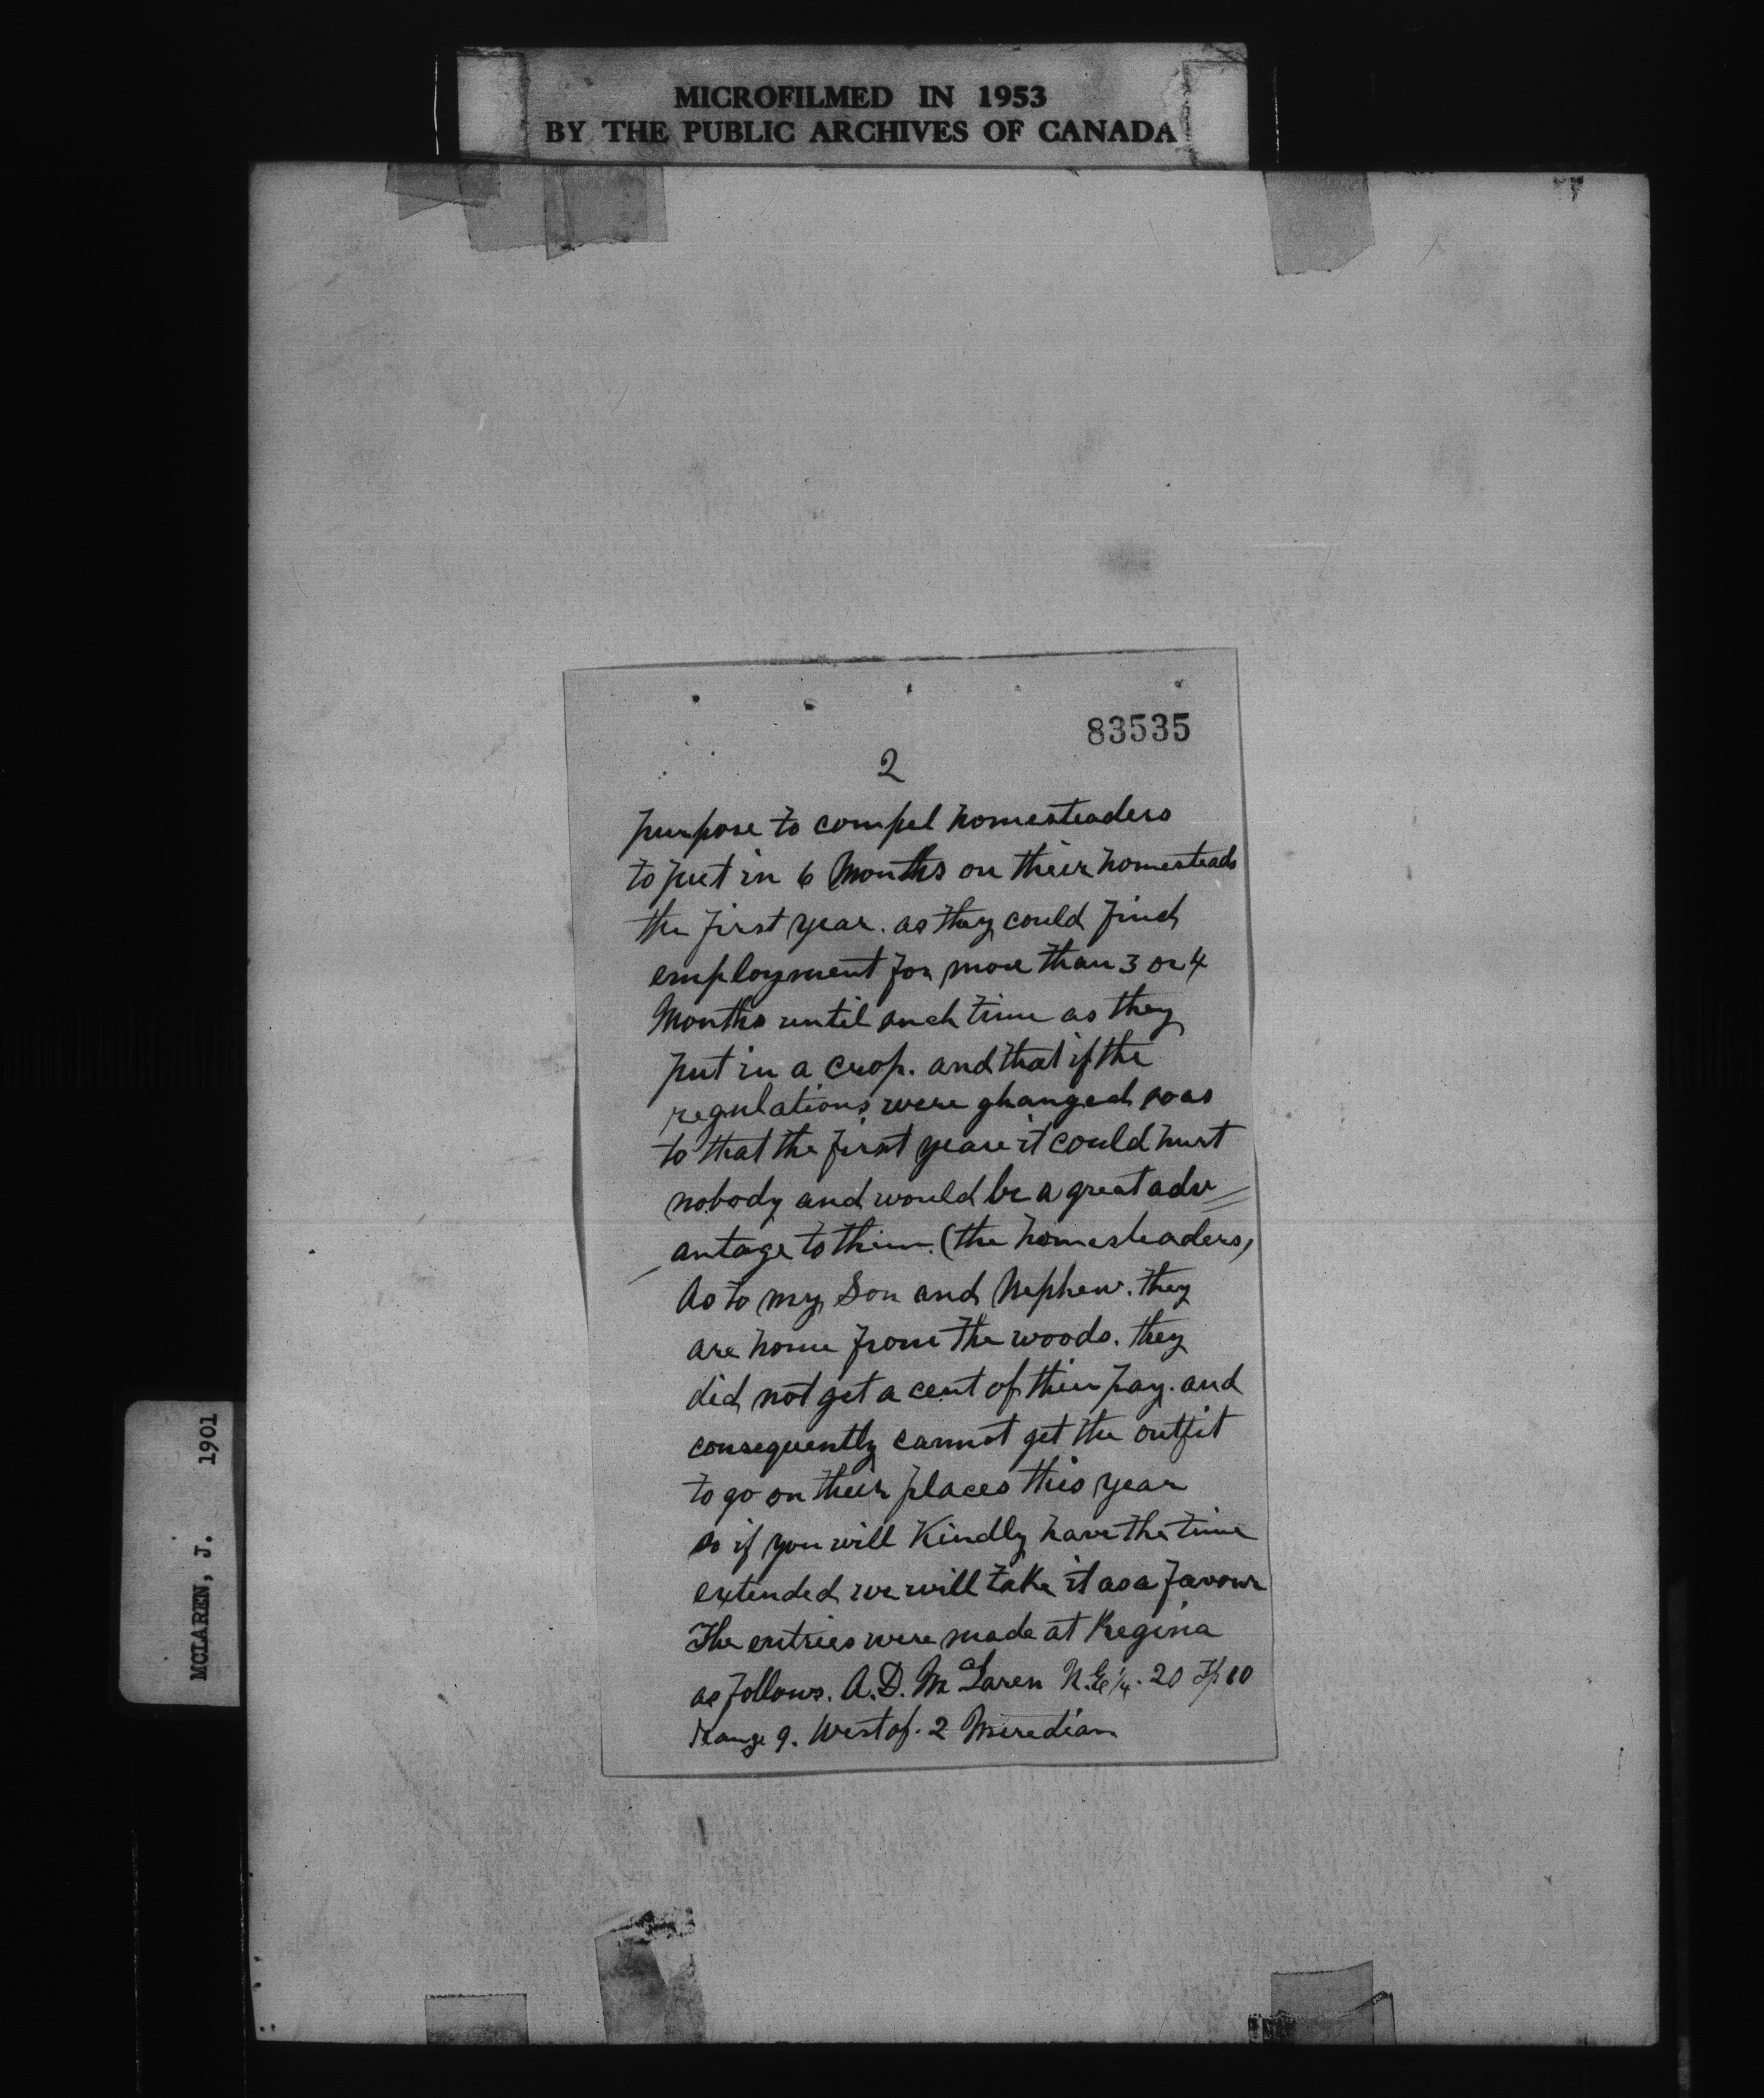 MICROFILMED IN 1953
BY THE PUBLIC ARCHIVES OF CANADA
83535
2
purpose to compel homesteaders
to put in 6 Months on their homesteads
the first year. as they could find
employment for more than 3 or 4
Months until such time as they
put in a crop. and that if the
regulations were changed so as
to that the first yeare it could hurt
nobody and would be a great adv=
antage to them. (the homesteaders)
As to my Son and Nephew. they
are home from the woods. they
did not get a cent of their pay. and
consequently cannot get the outfit
to go on their places this year
so if you will Kindly have the time
extended we will take it as a favour
The entries were made at Regina
as follows. A.D. McLaren N.E 1/4. 20 Tp 10
Range 9. West of. 2 Meredian
MCLAREN, J. 1901